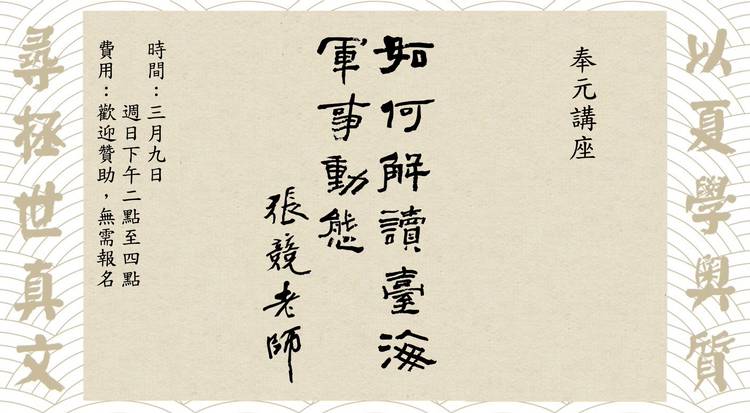 以夏學奧質
奉元講座
如何解讀臺海
軍事動態
張競老師
時間：三月九日
週日下午二點至四點
費用：歡迎贊助，無需報名
尋拯世真文